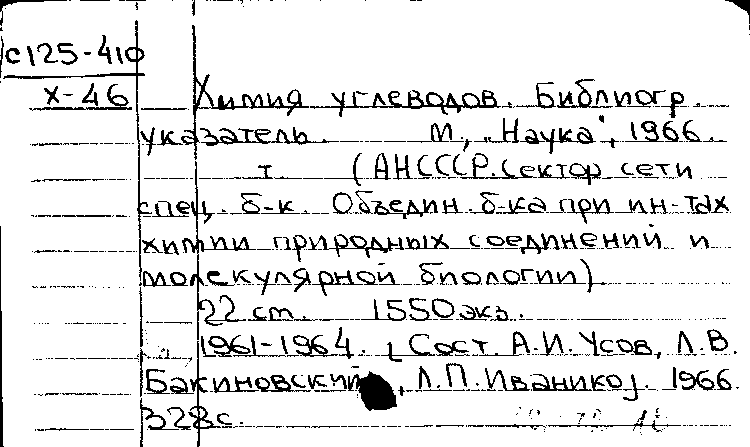 с125-410
х-46
Химия углеводов. Библиогр.
указатель. М., „Наука", 1966.
т. (АНСССР. Сектор сети
спец. б-к. Объедин. б-ка при ин-тах
химии природных соединений и
молекулярной биологии).
22 см. 1550 экз.
1961-1964. [Сост. А.И. Усов, Л.В.
Бакиновский, Л.П. Иваники]. 1966.
328 с.